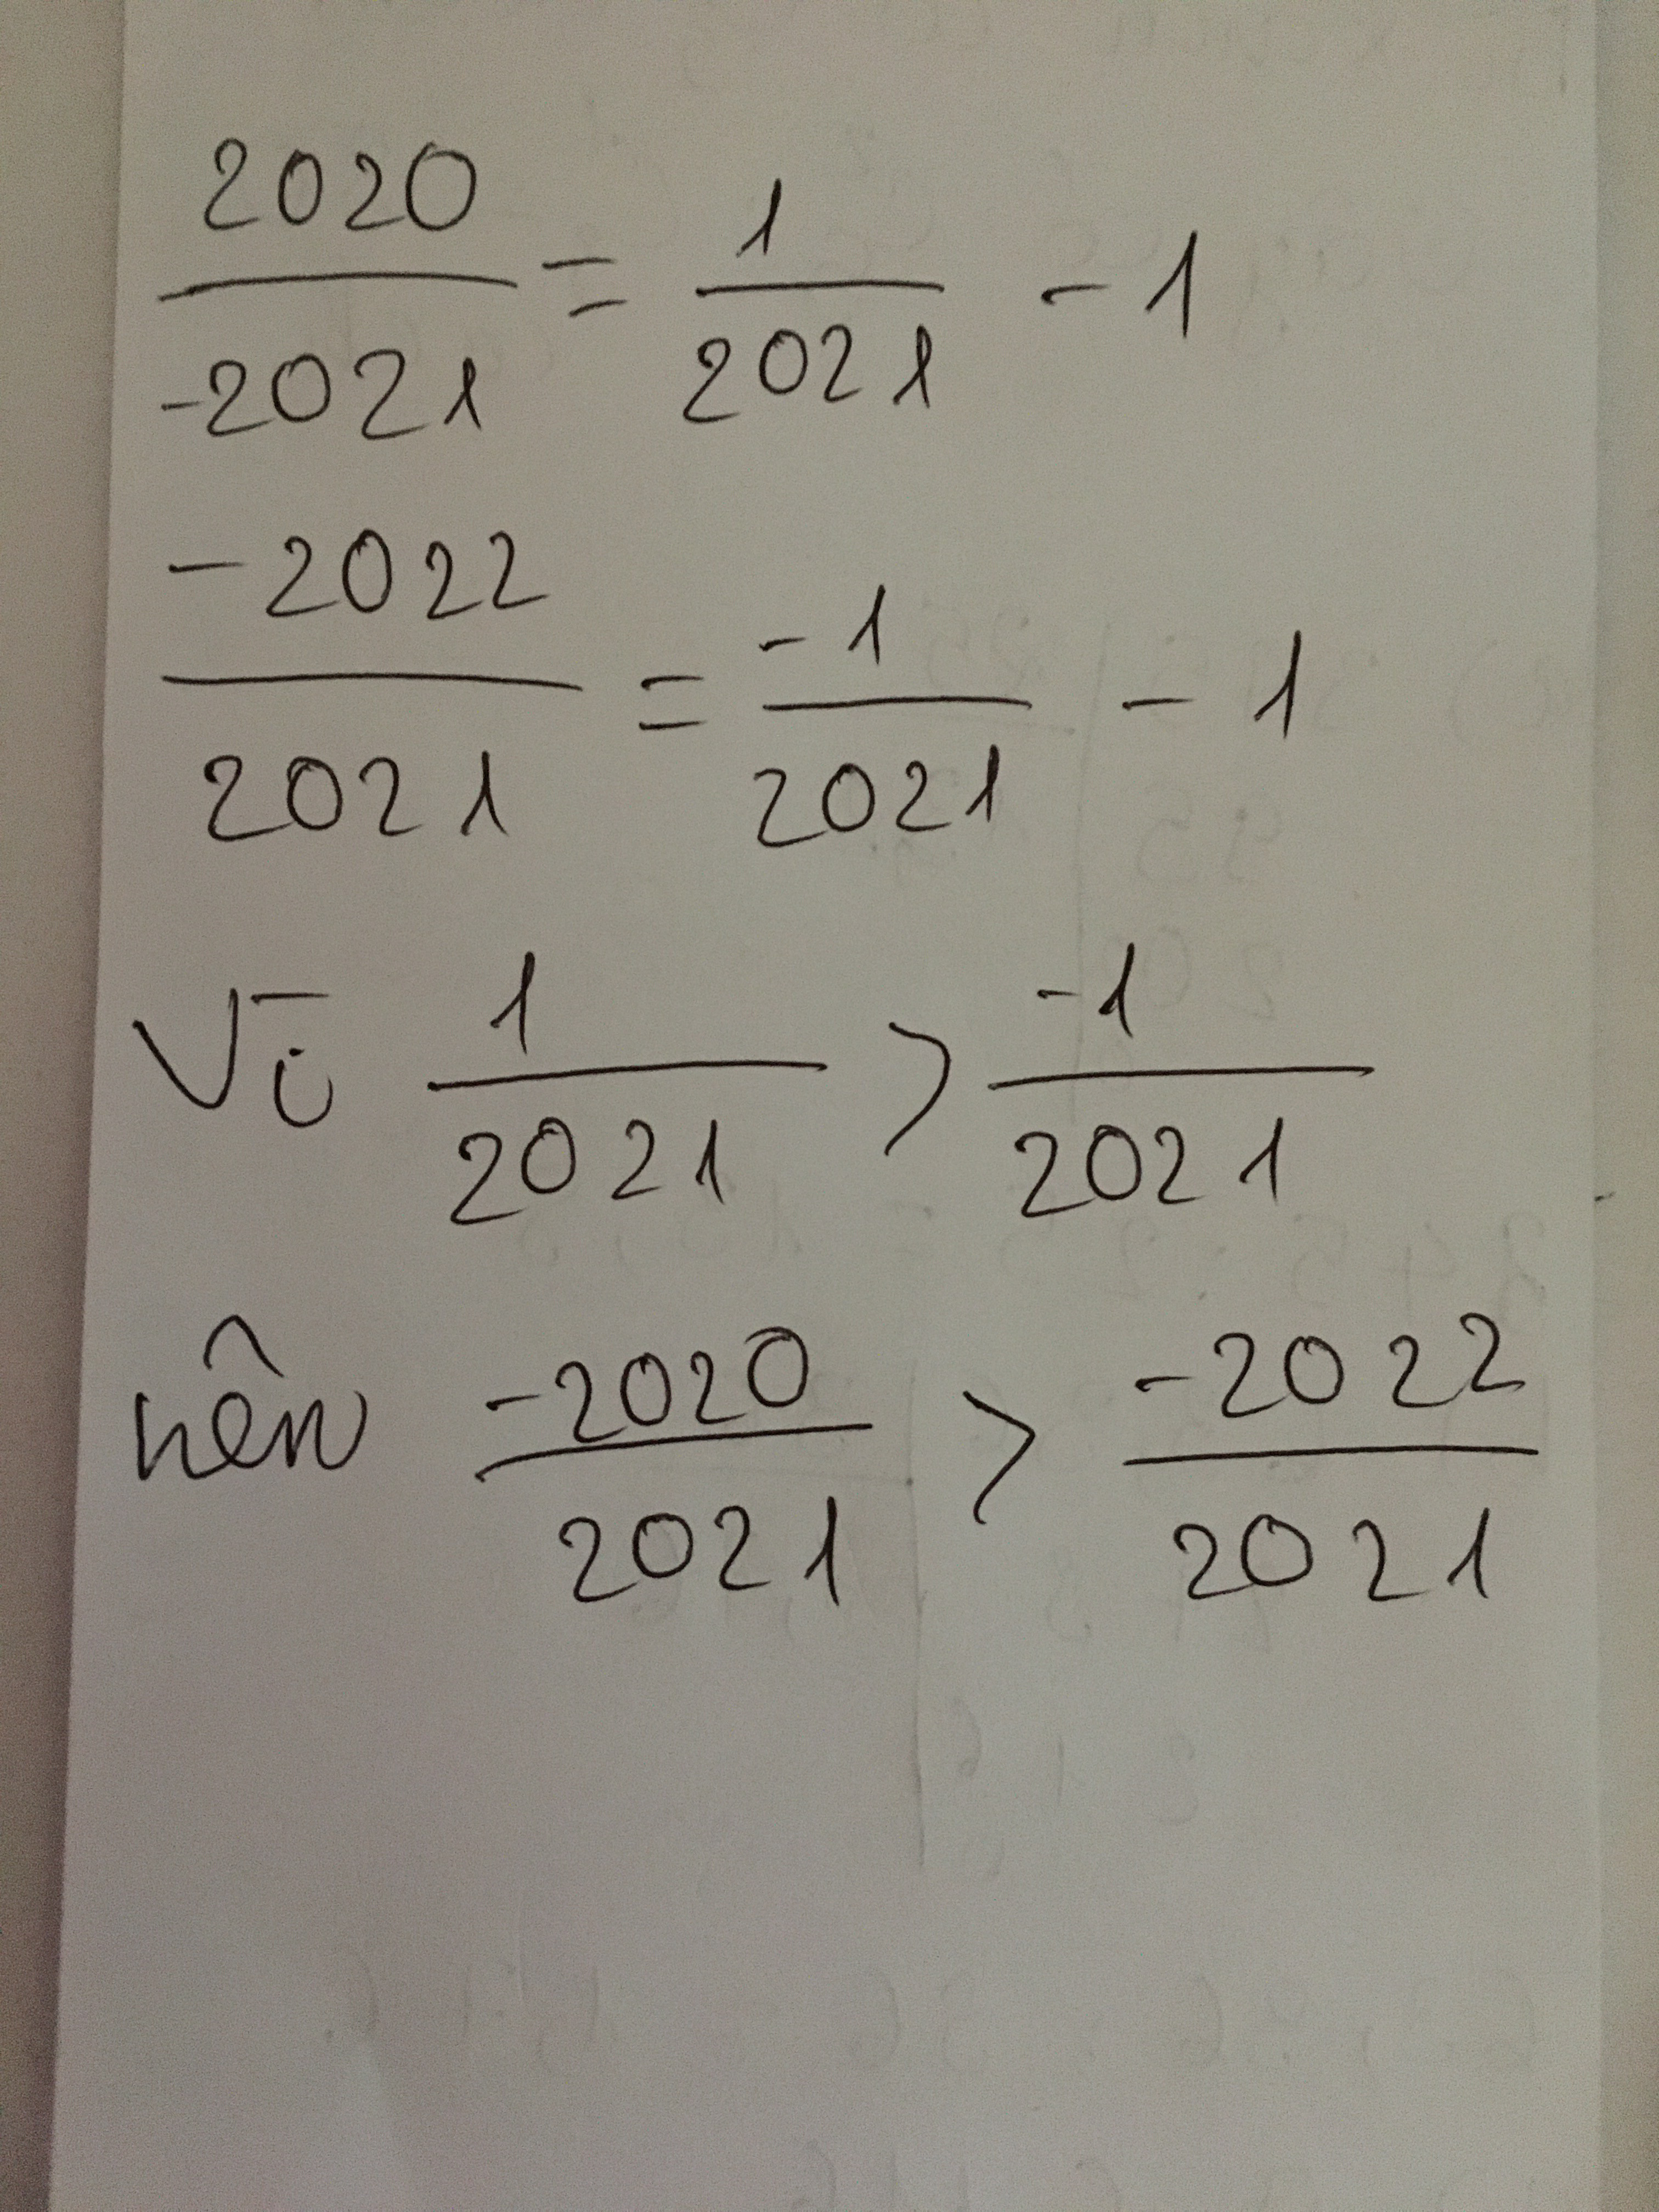 2020/-2021 = 1/2021 - 1
-2022/2021 = -1/2021 - 1
Vì 1/2021 > -1/2021
nên -2020/2021 > -2022/2021